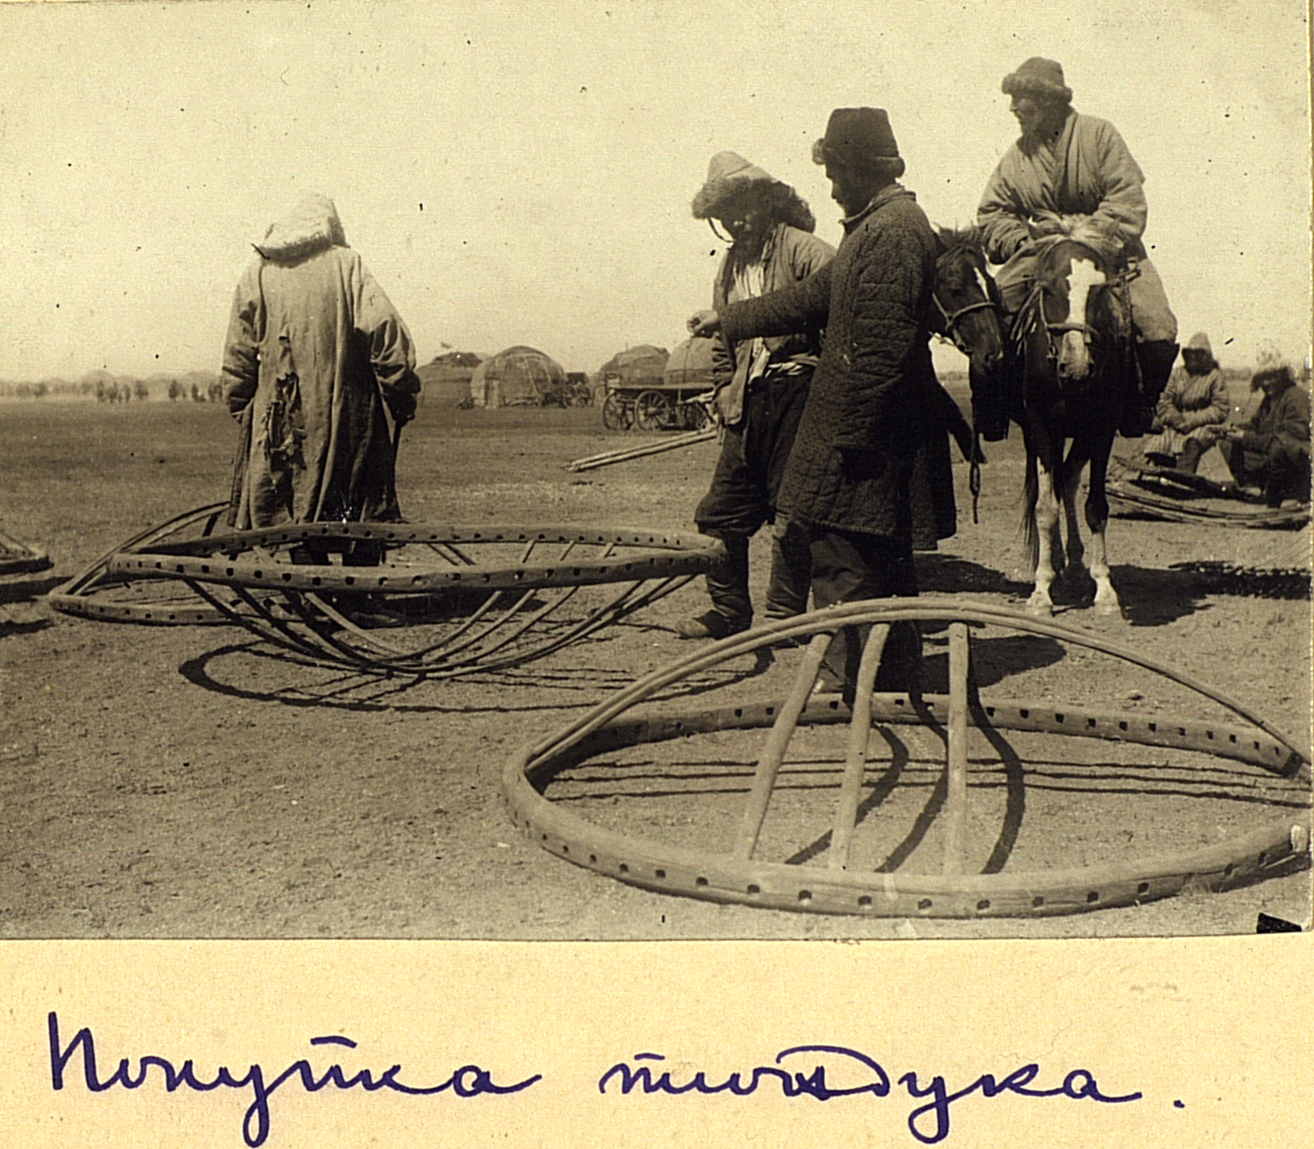 Покупка тюндука.